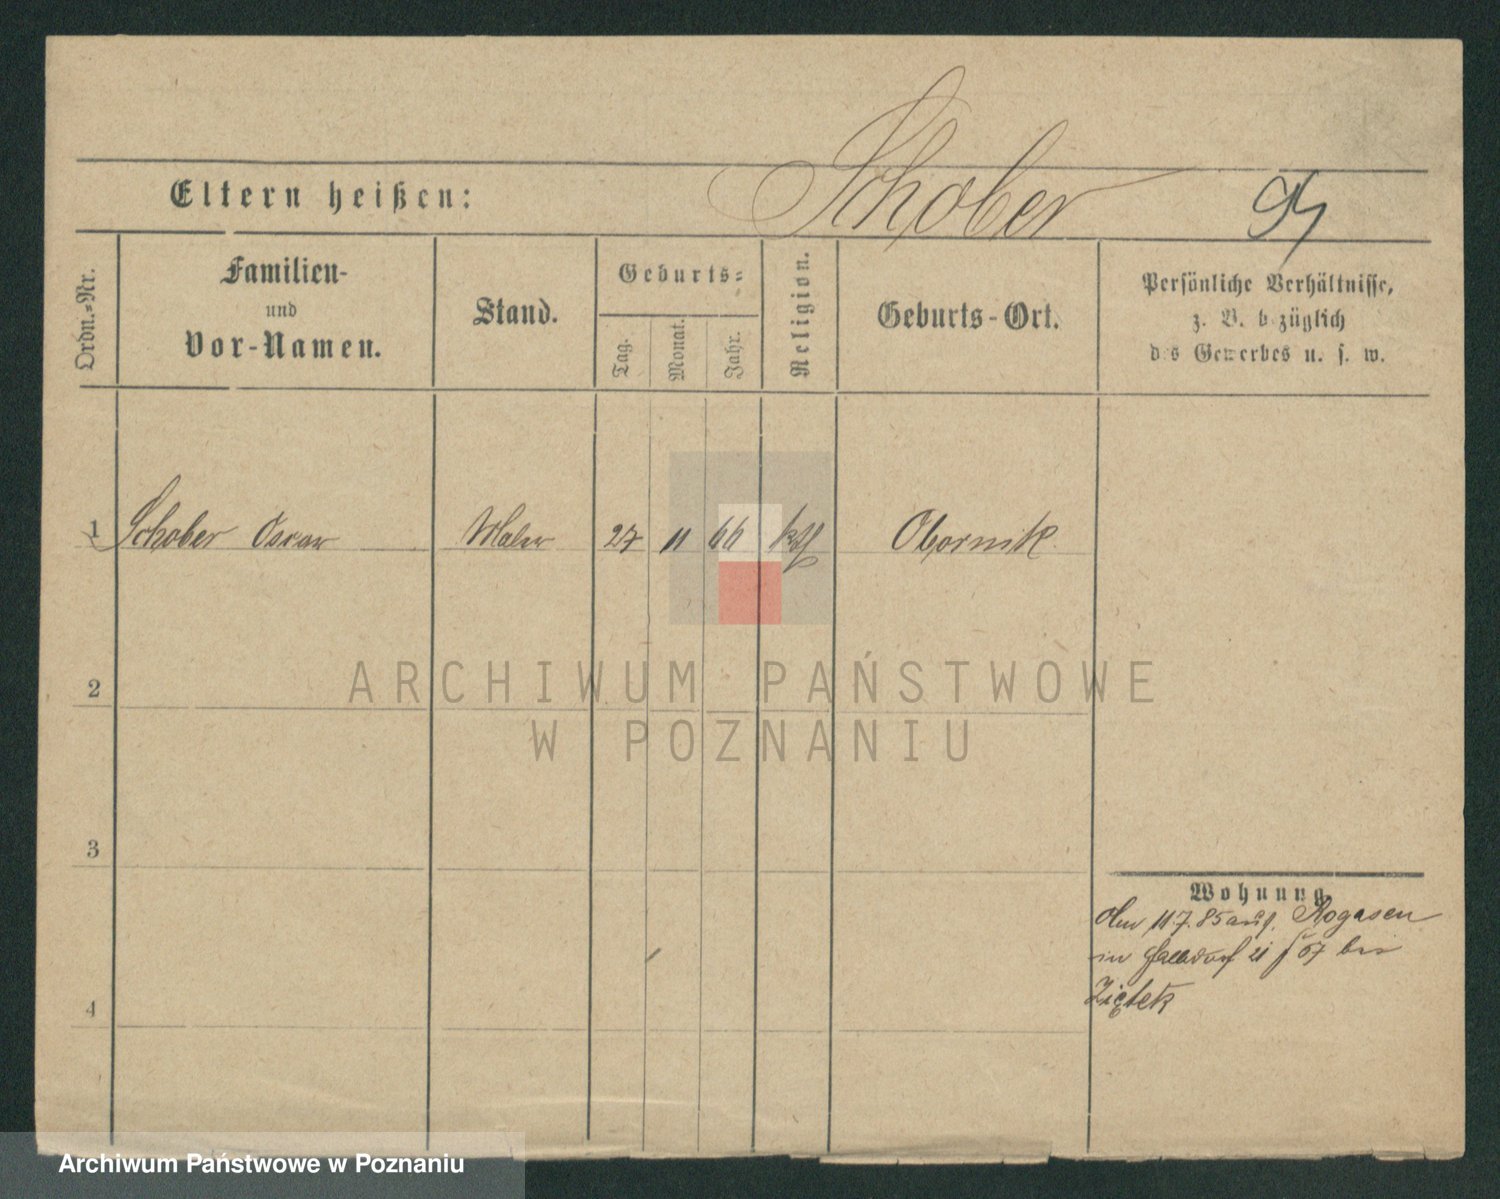 Schober 94
Eltern heißen:
Ordn.-Nr.
Familien-
und
Vor-Namen.
Stand.
Geburts-
Tag.
Monat.
Jahr.
Religion.
Geburts-Ort.
Persönliche Verhältnisse,
z. B. bezüglich
des Gewerbes u. s. w.
1 Schober Oscar Maler 27 11 66 kth Obornik
2
3
4
Wohnung
Am 11.7.85 aus Rogasen
in 21 67 bei
Ziętek
ARCHIWUM PAŃSTWOWE
W POZNANIU
Archiwum Państwowe w Poznaniu